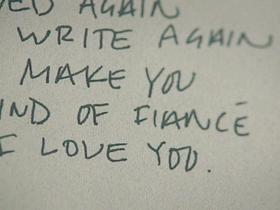 AGAIN
WRITE AGAIN
MAKE YOU
OF FIANCÉ
I LOVE YOU.